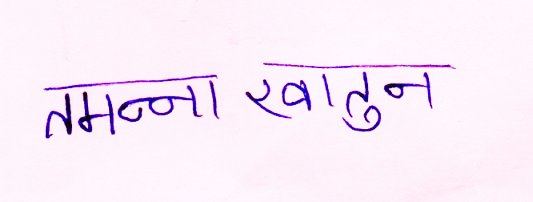 तमन्ना खातुन